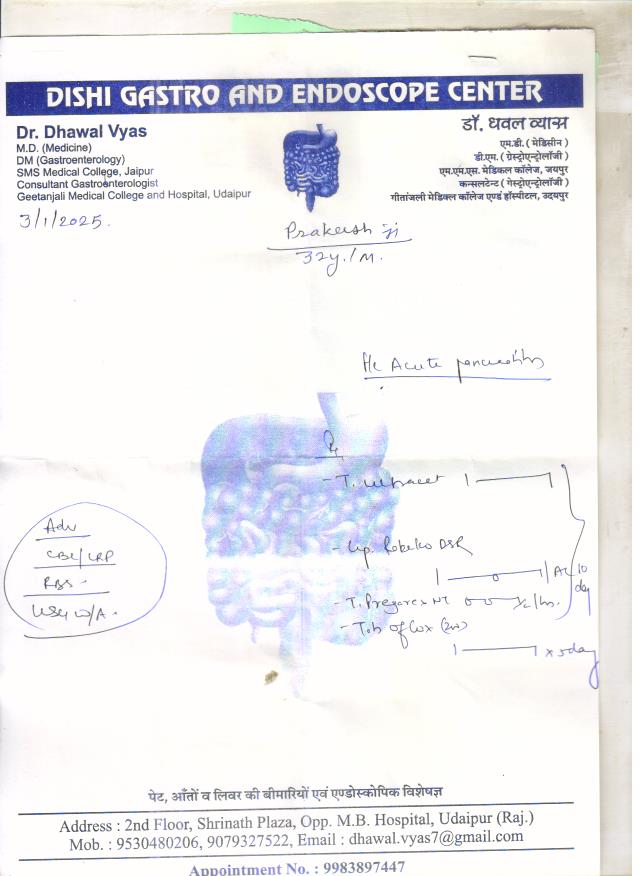 DISHI GASTRO AND ENDOSCOPE CENTER
Dr. Dhawal Vyas
M.D. (Medicine)
DM (Gastroenterology)
SMS Medical College, Jaipur
Consultant Gastroenterologist
Geetanjali Medical College and Hospital, Udaipur
डॉ. धवल व्यास
एम.डी. ( मेडिसीन )
डी.एम. ( ग्रेस्ट्रोएन्ट्रोलॉजी )
एम.एम.एस. मेडिकल कॉलेज, जयपुर
कन्सलटेन्ट ( गेस्ट्रोएन्ट्रोलॉजी )
गीतांजली मेडिक्ल कॉलेज एण्ड हॉस्पीटल, उदयपुर
3/1/2025.
Prakash ji
32y./M.
Acute pancreatitis
Rx
- T. Ultracet
- Cap. Rabeko DSR
10 day
- T. Pregarex NT
- Tab Oflox
x 5day
Adv
CBC/CRP
RBS -
USG W/A.
पेट, आँतों व लिवर की बीमारियों एवं एण्डोस्कोपिक विशेषज्ञ
Address : 2nd Floor, Shrinath Plaza, Opp. M.B. Hospital, Udaipur (Raj.)
Mob. : 9530480206, 9079327522, Email : dhawal.vyas7@gmail.com
Appointment No. : 9983897447